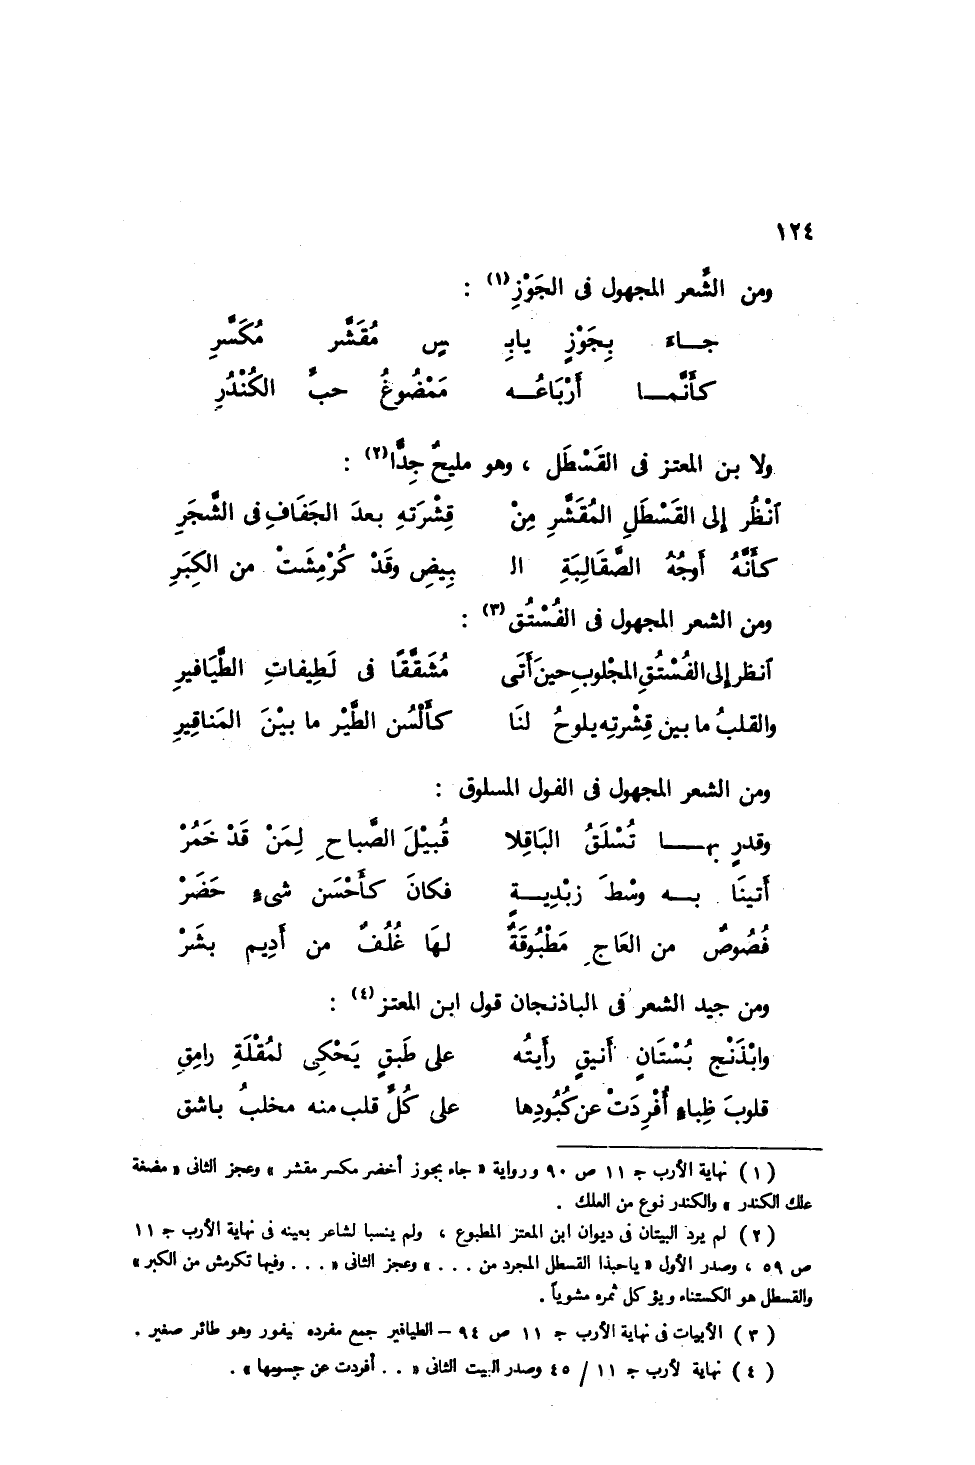 ١٢٤
ومن الشَّعر المجهول فى الجَوْزِ(١) :
جــاء بِجَوْزٍ يابِـ ـسٍ مُقَشَّر مُكَسَّرِ
كأَنَّمــا أَرْبَاعُــه مَمْضُوغُ حبِّ الكُنْدُرِ
ولا بن المعتز فى القَسْطَل ، وهو مليحٌ جِدًّا(٢) :
اَنْظُر إلى القَسْطَلِ المُقَشَّرِ مِنْ قِشْرَتهِ بعدَ الجَفَافِ فى الشَّجَرِ
كأَنَّهُ أَوجُهُ الصَّقَالِبَةِ الـ ـبِيضِ وقَدْ كُرْمِشَتْ من الكِبَرِ
ومن الشعر المجهول فى الفُسْتُق(٣) :
اَنظر إلى الفُسْتُقِ المجْلوبِ حينَ أَتَى مُشَقَّقًا فى لَطِيفاتِ الطَّيَافيرِ
والقلبُ ما بين قِشْرتِه يلوحُ لنَا كأَلْسُن الطَّيْر ما بيْنَ المَناقِيرِ
ومن الشعر المجهول فى الفول المسلوق :
وقدرٍ بهــا تُسْلَقُ البَاقِلا قُبيْلَ الصَّباحِ لِمَنْ قَدْ خَمُرْ
أَتينَا بــه وسْطَ زبْدِيــةٍ فكانَ كأَحْسَن شىءٍ حَضَرْ
فُصُوصٌ من العَاجِ مَطْبُوقَةٌ لهَا غُلُفٌ من أَدِيم بشَرْ
ومن جيد الشعر فى الباذنجان قول ابن المعتز(٤) :
وابْذَنْج بُسْتَانٍ أَنيقٍ رأَيتُه على طَبقٍ يَحْكِى لمُقْلَةِ رامِقِ
قلوبَ ظِباءٍ أُفْرِدَتْ عن كُبُودِها على كُلِّ قلب منه مخلبُ باشق
(١) نهاية الأرب ج ١١ ص ٩٠ ورواية « جاء بجوز أخضر مكسر مقشر » وعجز الثانى « مضغة
علك الكندر » والكندر نوع من العلك .
(٢) لم يرد البيتان فى ديوان ابن المعتز المطبوع ، ولم ينسبا لشاعر بعينه فى نهاية الأرب ج ١١
ص ٥٩ ، وصدر الأول « ياحبذا القسطل المجرد من . . . » وعجز الثانى « . . . وفيها تكرمش من الكبر »
والقسطل هو الكستناء ويؤكل ثمره مشوياً .
(٣) الأبيات فى نهاية الأرب ج ١١ ص ٩٤ – الطيافير جمع مفرده نيفور وهو طائر صغير .
(٤) نهاية لأرب ج ١١ / ٤٥ وصدر البيت الثانى « . . أفردت عن جسومها » .